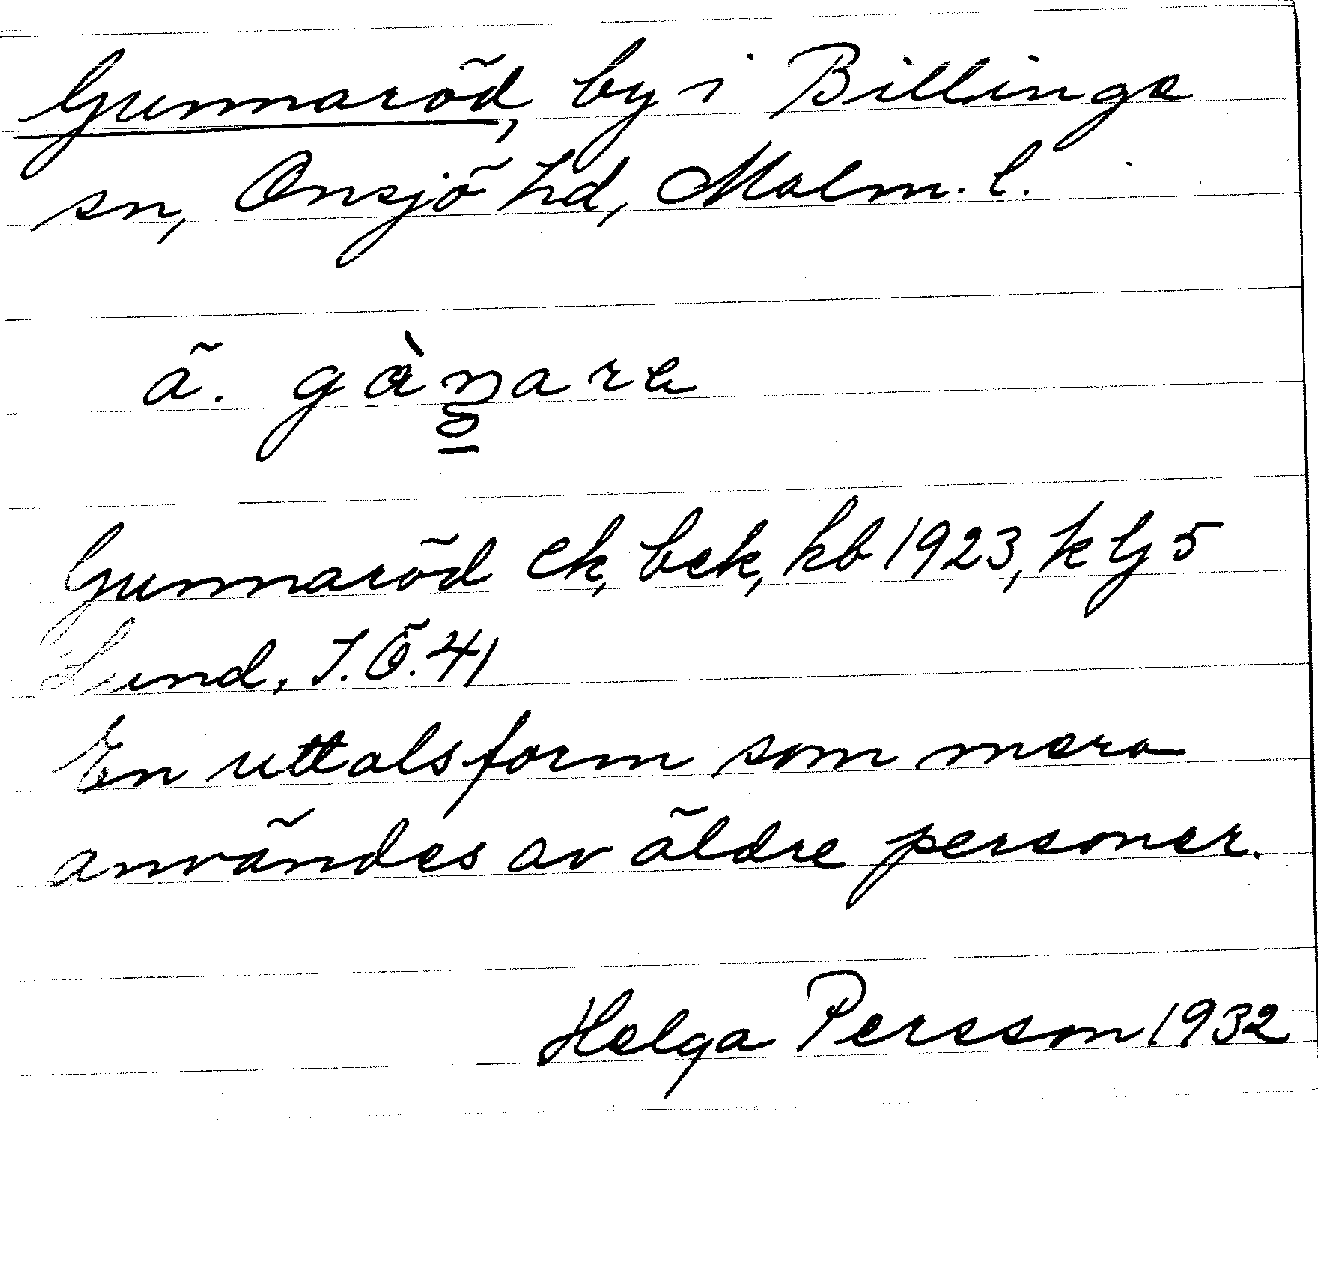 Gunnaröd, by i Billinge
sn, Onsjö hd, Malm. l.
ä. gànare
Gunnaröd ek, bek, kb 1923, k Gj 5
Lund, J.Ö. 41
En uttalsform som mera
användes av äldre personer.
Helga Persson 1932